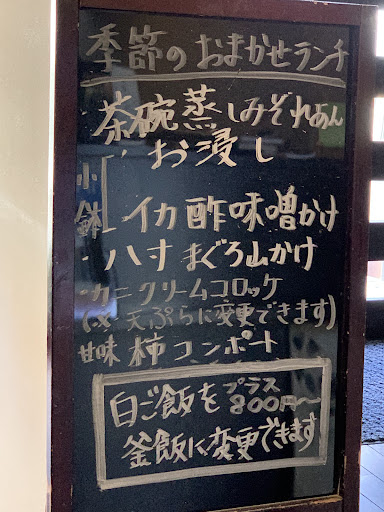 季節のおまかせランチ
・茶碗蒸しみぞれあん
小鉢
お浸し
イカ酢味噌かけ
・八寸まぐろ山かけ
・カニクリームコロッケ
(※天ぷらに変更できます)
甘味 柿コンポート
白ご飯をプラス800円〜
釜飯に変更できます